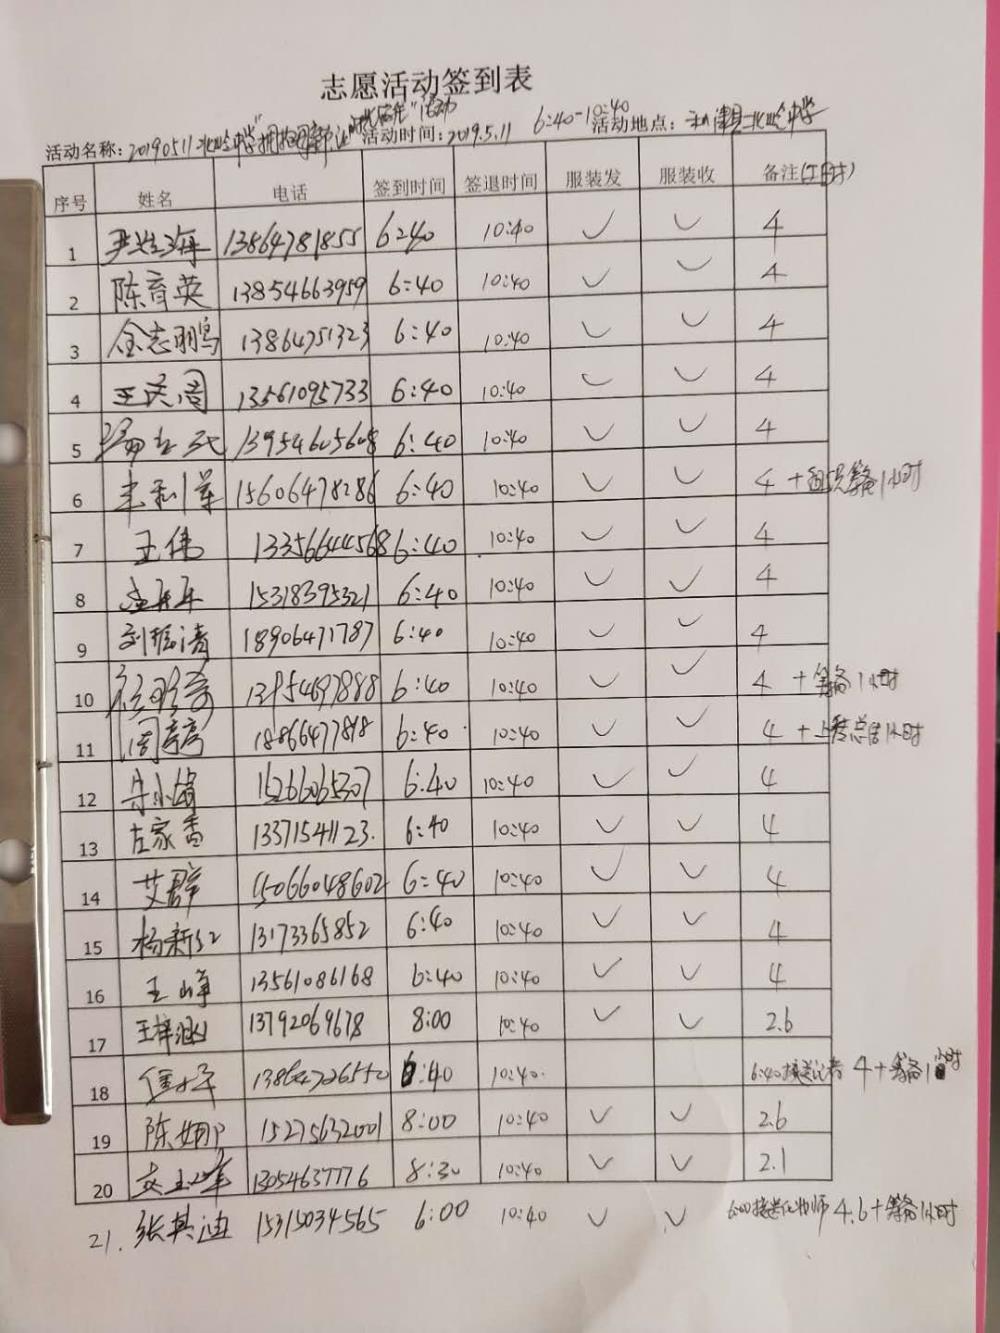 志愿活动签到表
活动名称：20190511北岭中学 活动时间：2019.5.11 6:40-10:40 活动地点：利津县北岭中学
序号 姓名 电话 签到时间 签退时间 服装发 服装收 备注(工时)
1 13864781855 6:40 10:40 ✓ ✓ 4
2 陈育英 13854663959 6:40 10:40 ✓ ✓ 4
3 金志鹏 13864751323 6:40 10:40 ✓ ✓ 4
4 13561095733 6:40 10:40 ✓ ✓ 4
5 13954605608 6:40 10:40 ✓ ✓ 4
6 15606478286 6:40 10:40 ✓ ✓ 4 +组织筹备1小时
7 王伟 13356644568 6:40 10:40 ✓ ✓ 4
8 15318395321 6:40 10:40 ✓ ✓ 4
9 刘振涛 18906471787 6:40 10:40 ✓ ✓ 4
10 13954697888 6:40 10:40 ✓ ✓ 4 +筹备1小时
11 周亭亭 18866477818 6:40 10:40 ✓ ✓ 4 +总结1小时
12 15266065307 6:40 10:40 ✓ ✓ 4
13 左家香 13371541123 6:40 10:40 ✓ ✓ 4
14 艾群 15066048602 6:40 10:40 ✓ ✓ 4
15 杨新红 13173365852 6:40 10:40 ✓ ✓ 4
16 王峰 13561086168 6:40 10:40 ✓ ✓ 4
17 王梓涵 13792069678 8:00 10:40 ✓ ✓ 2.6
18 13864726550 6:40 10:40 6:40接送记者 4+筹备1小时
19 陈娜 15275632001 8:00 10:40 ✓ ✓ 2.6
20 13054637776 8:30 10:40 ✓ ✓ 2.1
21. 张其迪 15315034565 6:00 10:40 ✓ ✓ 6:00接送化妆师 4.6+筹备1小时